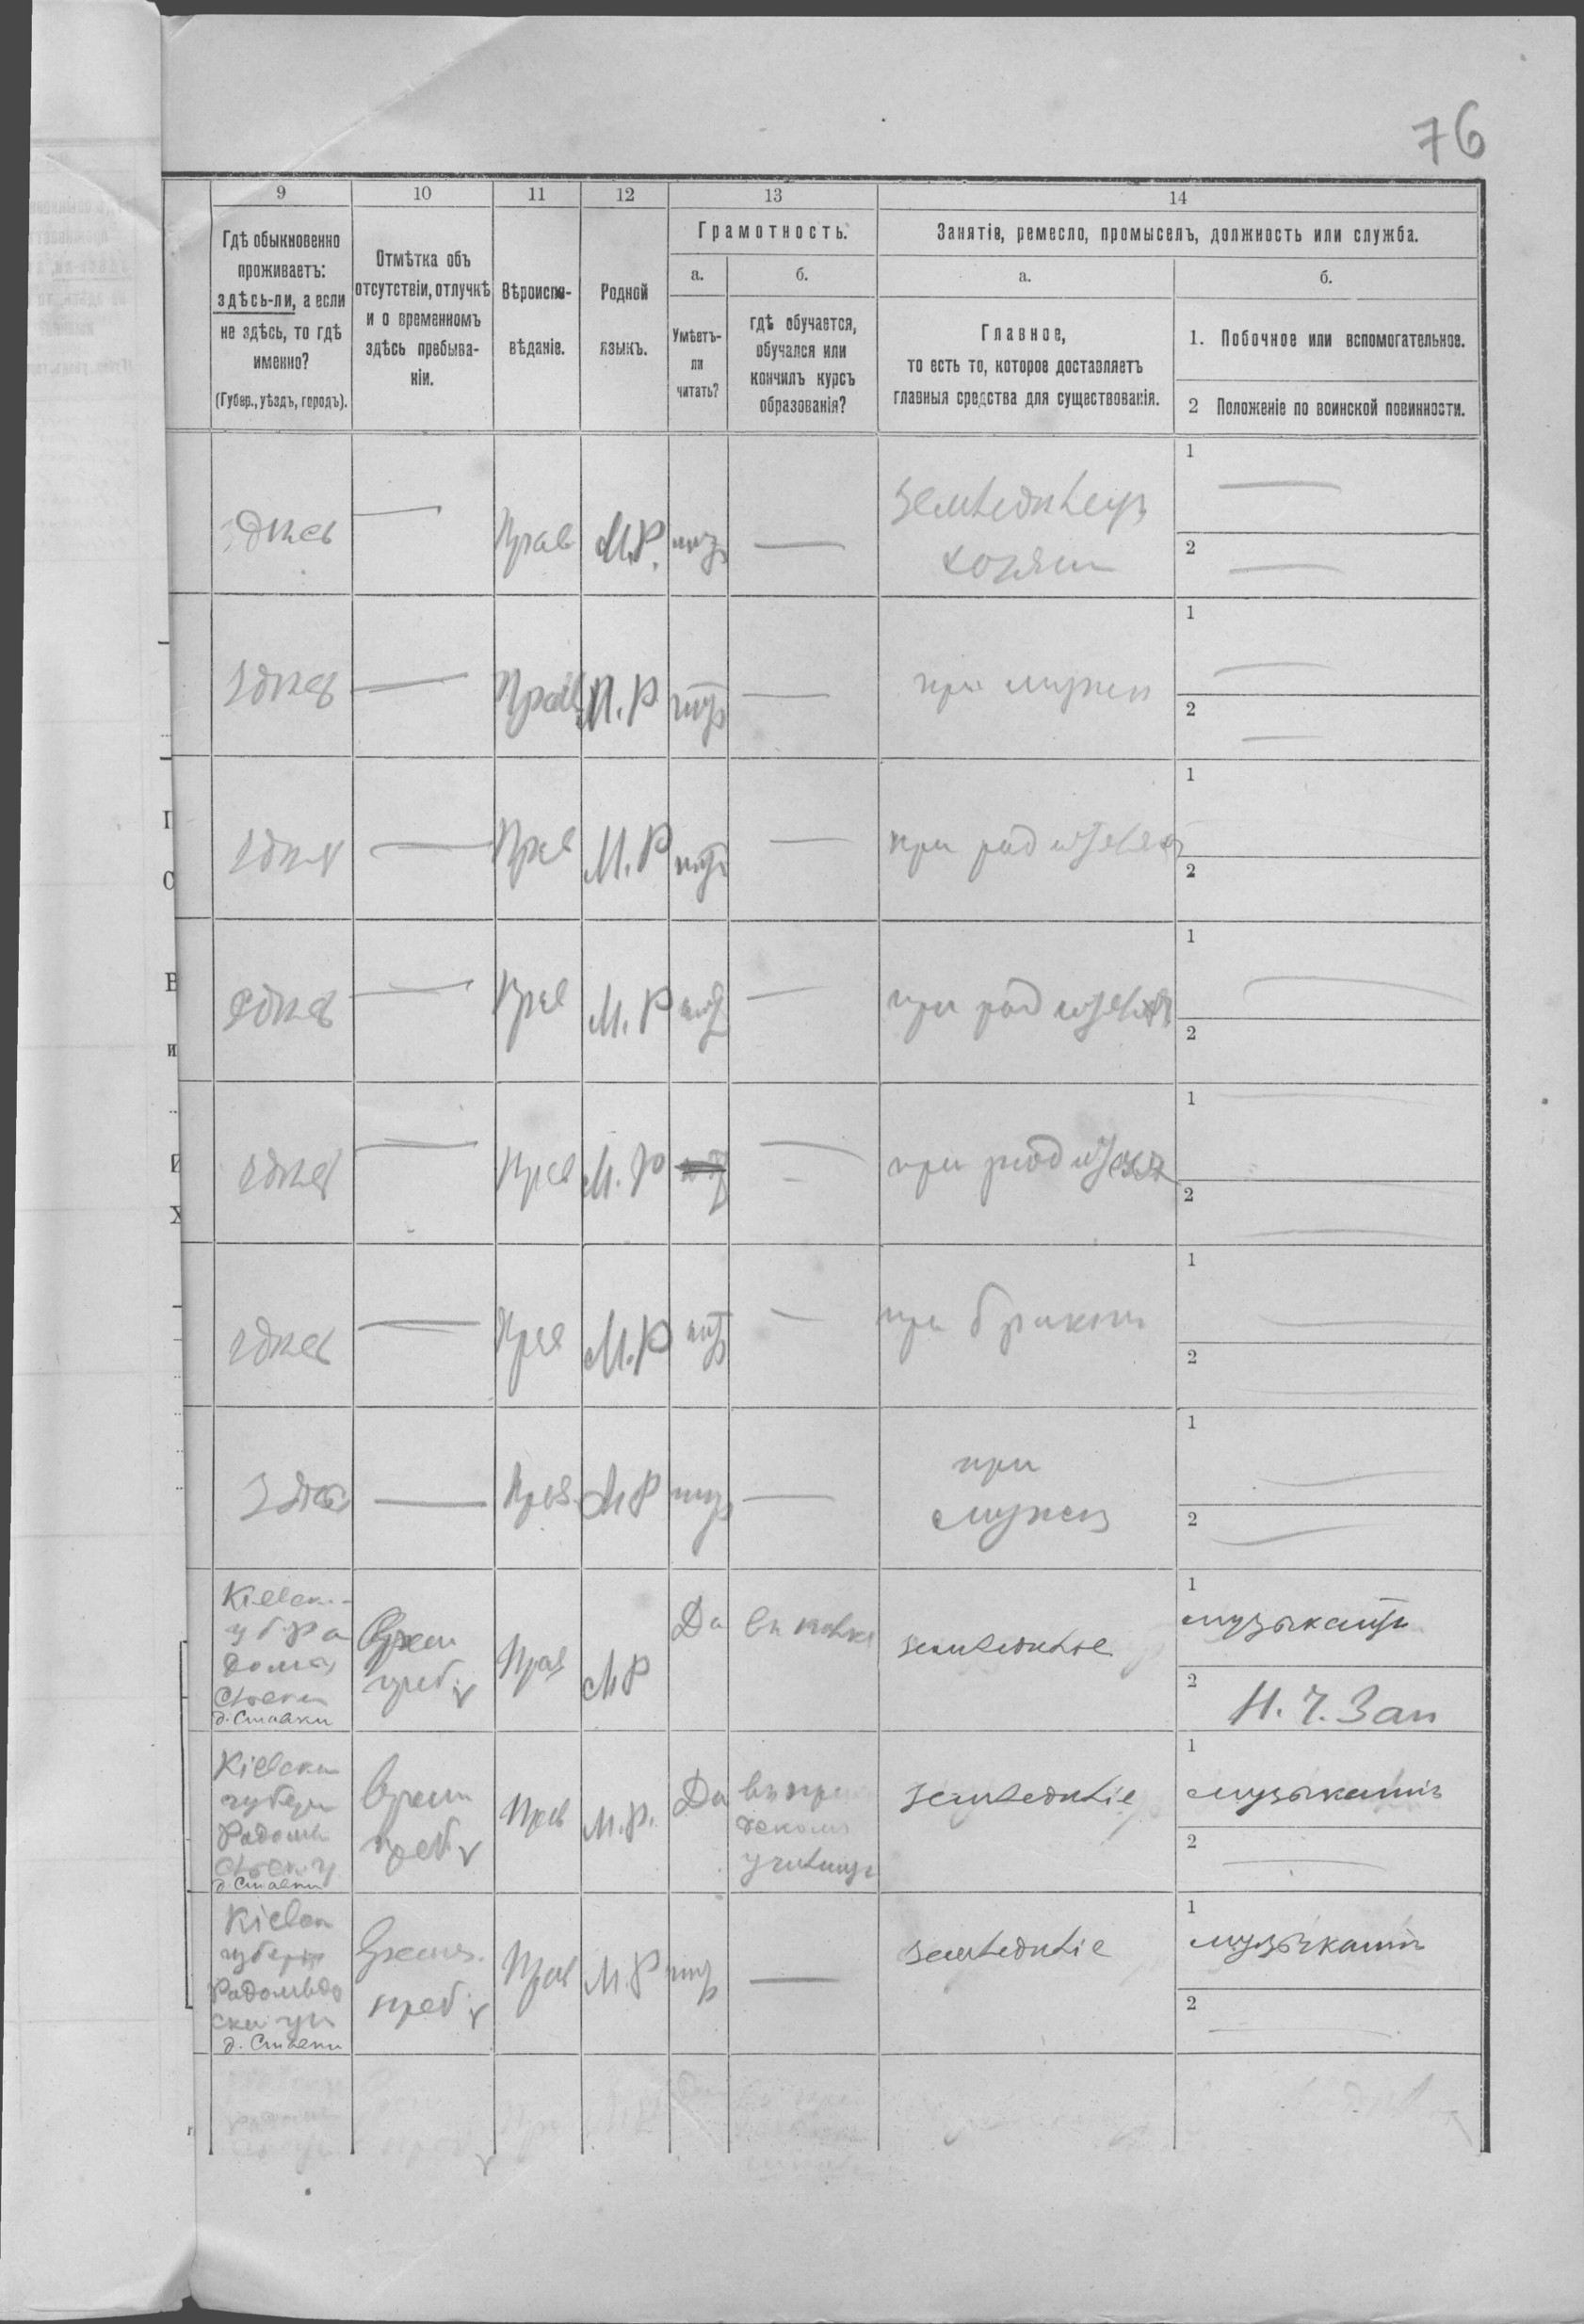 76
9 10 11 12 13 14
Гдѣ обыкновенно
проживаетъ:
здѣсь-ли, а если
не здѣсь, то гдѣ
именно?
(Губер., уѣздъ, городъ).
Отмѣтка объ
отсутствіи, отлучкѣ
и о временномъ
здѣсь пребыва-
ніи.
Вѣроиспо-
вѣданіе.
Родной
языкъ.
Грамотность.
а. б.
Умѣетъ-
ли
читать?
гдѣ обучается,
обучался или
кончилъ курсъ
образованія?
Занятія, ремесло, промыселъ, должность или служба.
а. б.
Главное,
то есть то, которое доставляетъ
главныя средства для существованія.
1. Побочное или вспомогательное.
2 Положеніе по воинской повинности.
здѣсь — Прав М.Р. нѣтъ — земледѣлецъ
хозяин
1 —
2 —
здѣсь — Прав М.Р. нѣтъ — при мужѣ
1 —
2 —
здѣсь — Прав М.Р нѣтъ — при родителях
1
2
здѣсь — Прав М.Р нѣтъ — при родителях
1 —
2
здѣсь — Прав М.Р — при родителях
1 —
2 —
здѣсь — Прав М.Р нѣтъ — при братѣ
1 —
2 —
здѣсь — Прав М Р нѣтъ — при
мужѣ
1 —
2 —
Кіевск.
д. Ставки
Врем
преб. Прав М Р Да земледѣліе
1 музыкантъ
2 Н. Ч. Зап
Кіевск
губерн
Радомы
д. Ставки
Врем
преб Прав М.Р. Да
училищѣ
земледѣліе
1 музыкантъ
2 —
Кіевск
губерн
Радомысль
ск. у
д. Ставки
Времен.
преб. Прав М.Р нѣтъ — земледѣліе
1 музыкантъ
2 —